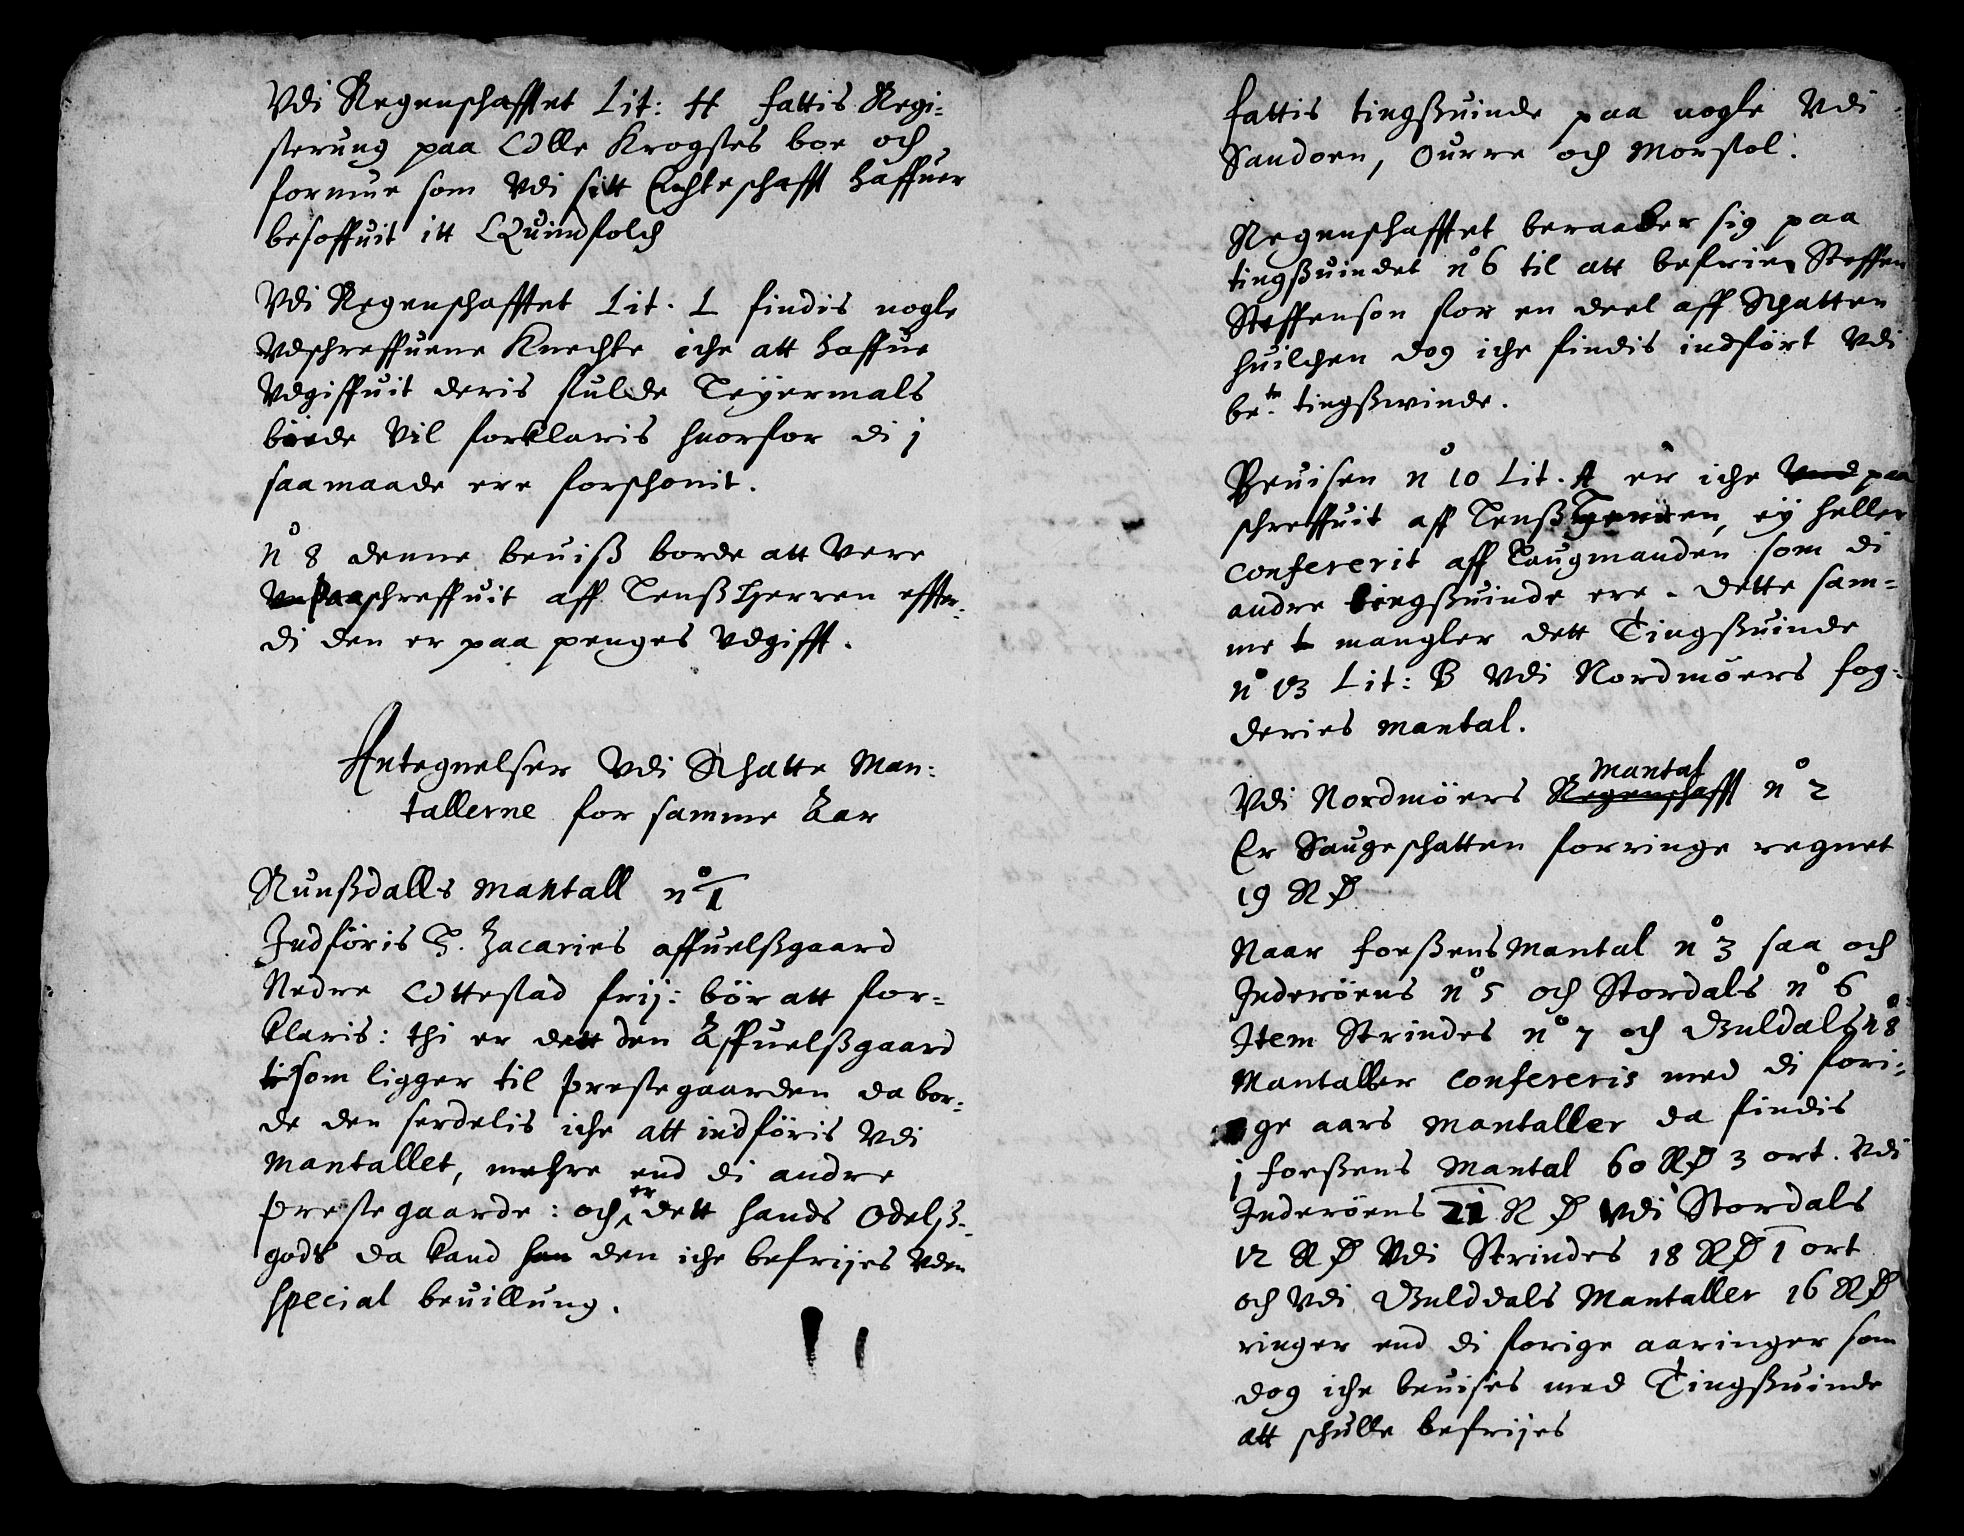 Vdi Regenschafftet Lit: H fattis Regi-
sterung paa Olle Krogstes boe och
formue som Vdi sitt Echteschafft haffuer
besoffuit itt Quindfolch
Vdi Regenschafftet Lit. L findis nogle
Vdschreffuene Knechte iche att haffue
Vdgiffuit deris fulde Leyermals
bøede Vil forklaris huorfor di j
saamaade ere forschonit.
No 8 denne beuiß borde att Vere
paaschreffuit aff Lenßherren effter-
di den er paa penges Vdgifft.
Antegnelser Vdi Schatte Man-
tallerne for samme Aar
Rumßdalls Mantall no 1
Indføris H. Zacaries affuelßgaard
Nedre Ottestad frij: bør att for-
klaris: thi er dett den Affuelßgaard
som ligger til prestegaarden da bor-
de den serdelis iche att indføris Vdi
Mantallet, mehre end di andre
prestegaarde: och er dett hands Odelß-
gods da kand den iche befrijes Vden
special beuillung.
fattis tingßuinde paa nogle Vdi
Sandoen, Ourre och Morstol.
Regenschafftet beraaber sig paa
tingßuindet no 6 til att befrie Steffen
Steffenson for en deel aff Schatten
huilchen dog iche findis indført Vdi
be.te tingßwinde.
Beuisen no 10 Lit. A er iche paa
schreffuit aff Lenßherren, ey heller
confererit aff Laugmanden som di
andre tingßuinde ere. Dette sam-
me mangler dett Tingßuinde
no 13 Lit: B Vdi Nordmøers fog-
deries mantal.
Vdi Nordmøers Regenschafft Mantal no 2
Er Saugeschatten forringe regnet
19 R D
Naar foeßens Mantal no 3 saa och
Inderøens no 5 och Stordals no 6
Item Strindes no 7 och Guldals n 8
Mantaller confereris med di fori-
ge aars mantaller da findis
j foeßens Mantal 60 R D 3 ort. Vdi
Inderøens 21 R D Vdi Stordals
12 R D Vdi Strindes 18 R D 1 ort
och Vdi Gulddals Mantaller 16 R D
ringer end di forige aaringer som
dog iche beuises med Tingßuinde
att schulle befrijes